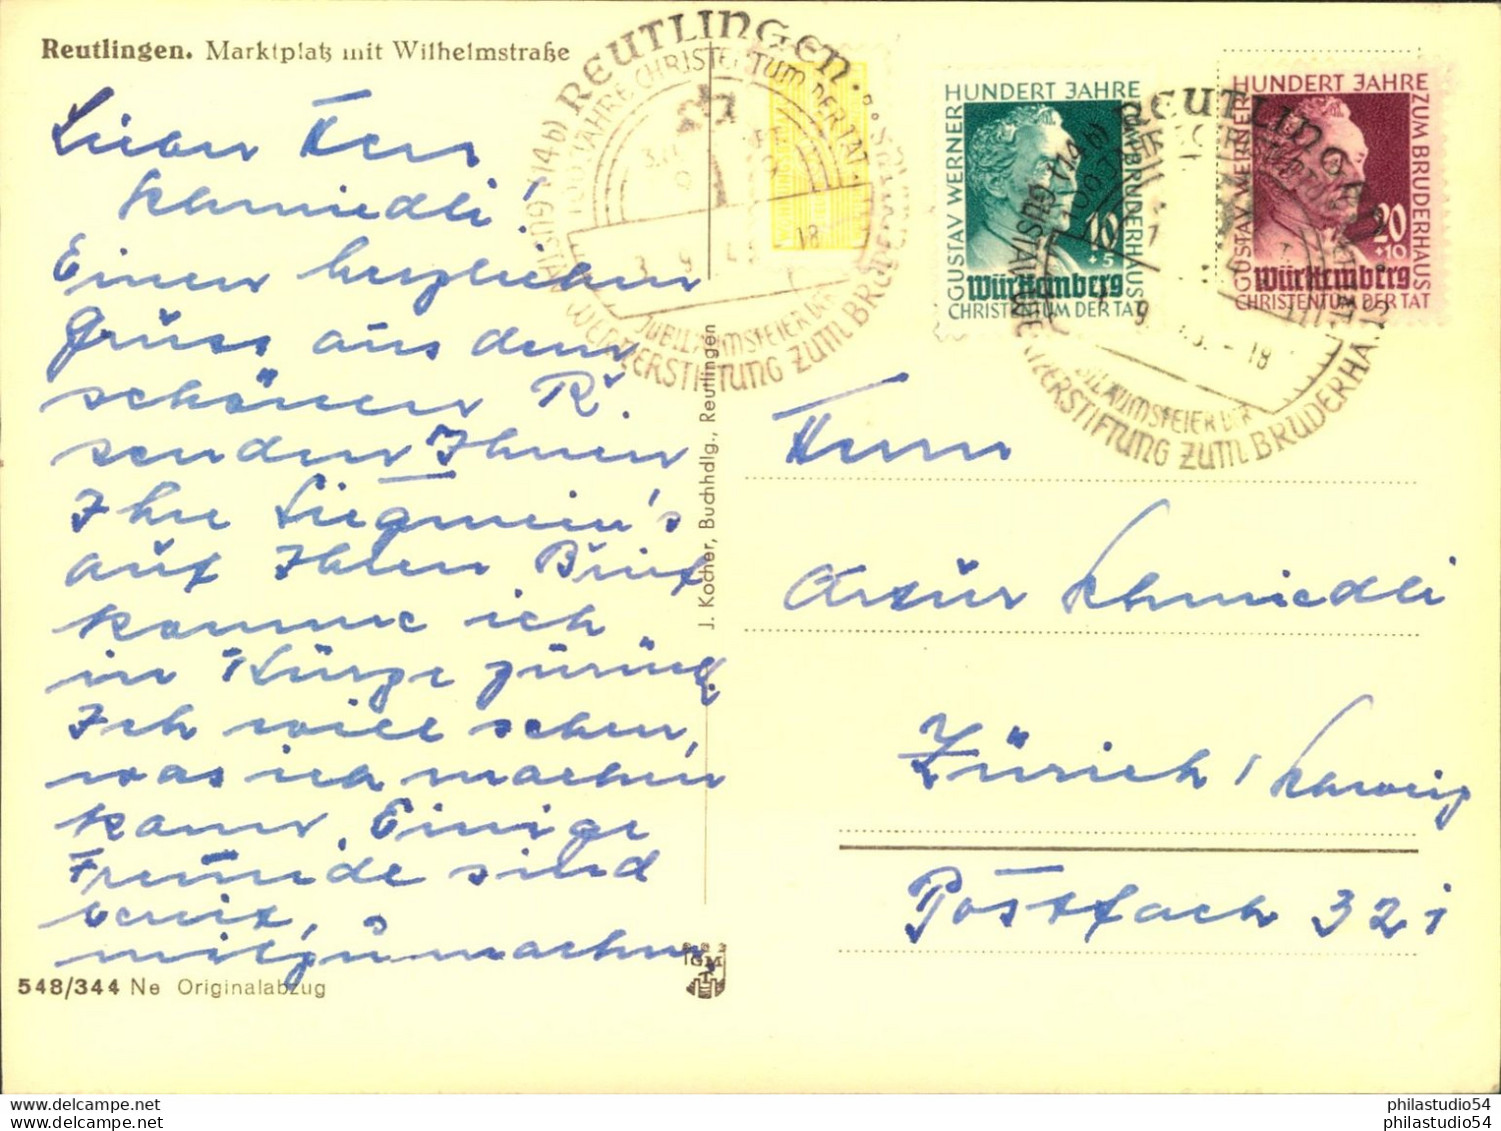 Reutlingen. Marktplatz mit Wilhelmstraße
Lieber Herr
Schmiedli!
Einen herzlichen
Gruss aus dem
schönen R.
senden Ihnen
Ihre Siegmein's
auf Ihren Brief
komme ich
in Kürze zurück.
Ich will sehen,
was ich machen
kann. Einige
Freunde sind
bereit,
mitzumachen.
548/344 Ne Originalabzug
J. Kocher, Buchhdlg., Reutlingen
REUTLINGEN
(14b)
100 JAHRE CHRISTENTUM DER TAT
3. 9. 4 18
JUBILÄUMSFEIER DER
GUSTAV WERNERSTIFTUNG ZUM BRUDERHAUS
HUNDERT JAHRE
GUSTAV WERNER
ZUM BRUDERHAUS
10
+5
Württemberg
CHRISTENTUM DER TAT
HUNDERT JAHRE
GUSTAV WERNER
ZUM BRUDERHAUS
20
+10
Württemberg
CHRISTENTUM DER TAT
REUTLINGEN
(14b)
9. 18
JUBILÄUMSFEIER DER
GUSTAV WERNERSTIFTUNG ZUM BRUDERHAUS
Herrn
Artur Schmiedli
Zürich / Schweiz
Postfach 321
GM
philastudio54
philastudio54
philastudio54
philastudio54